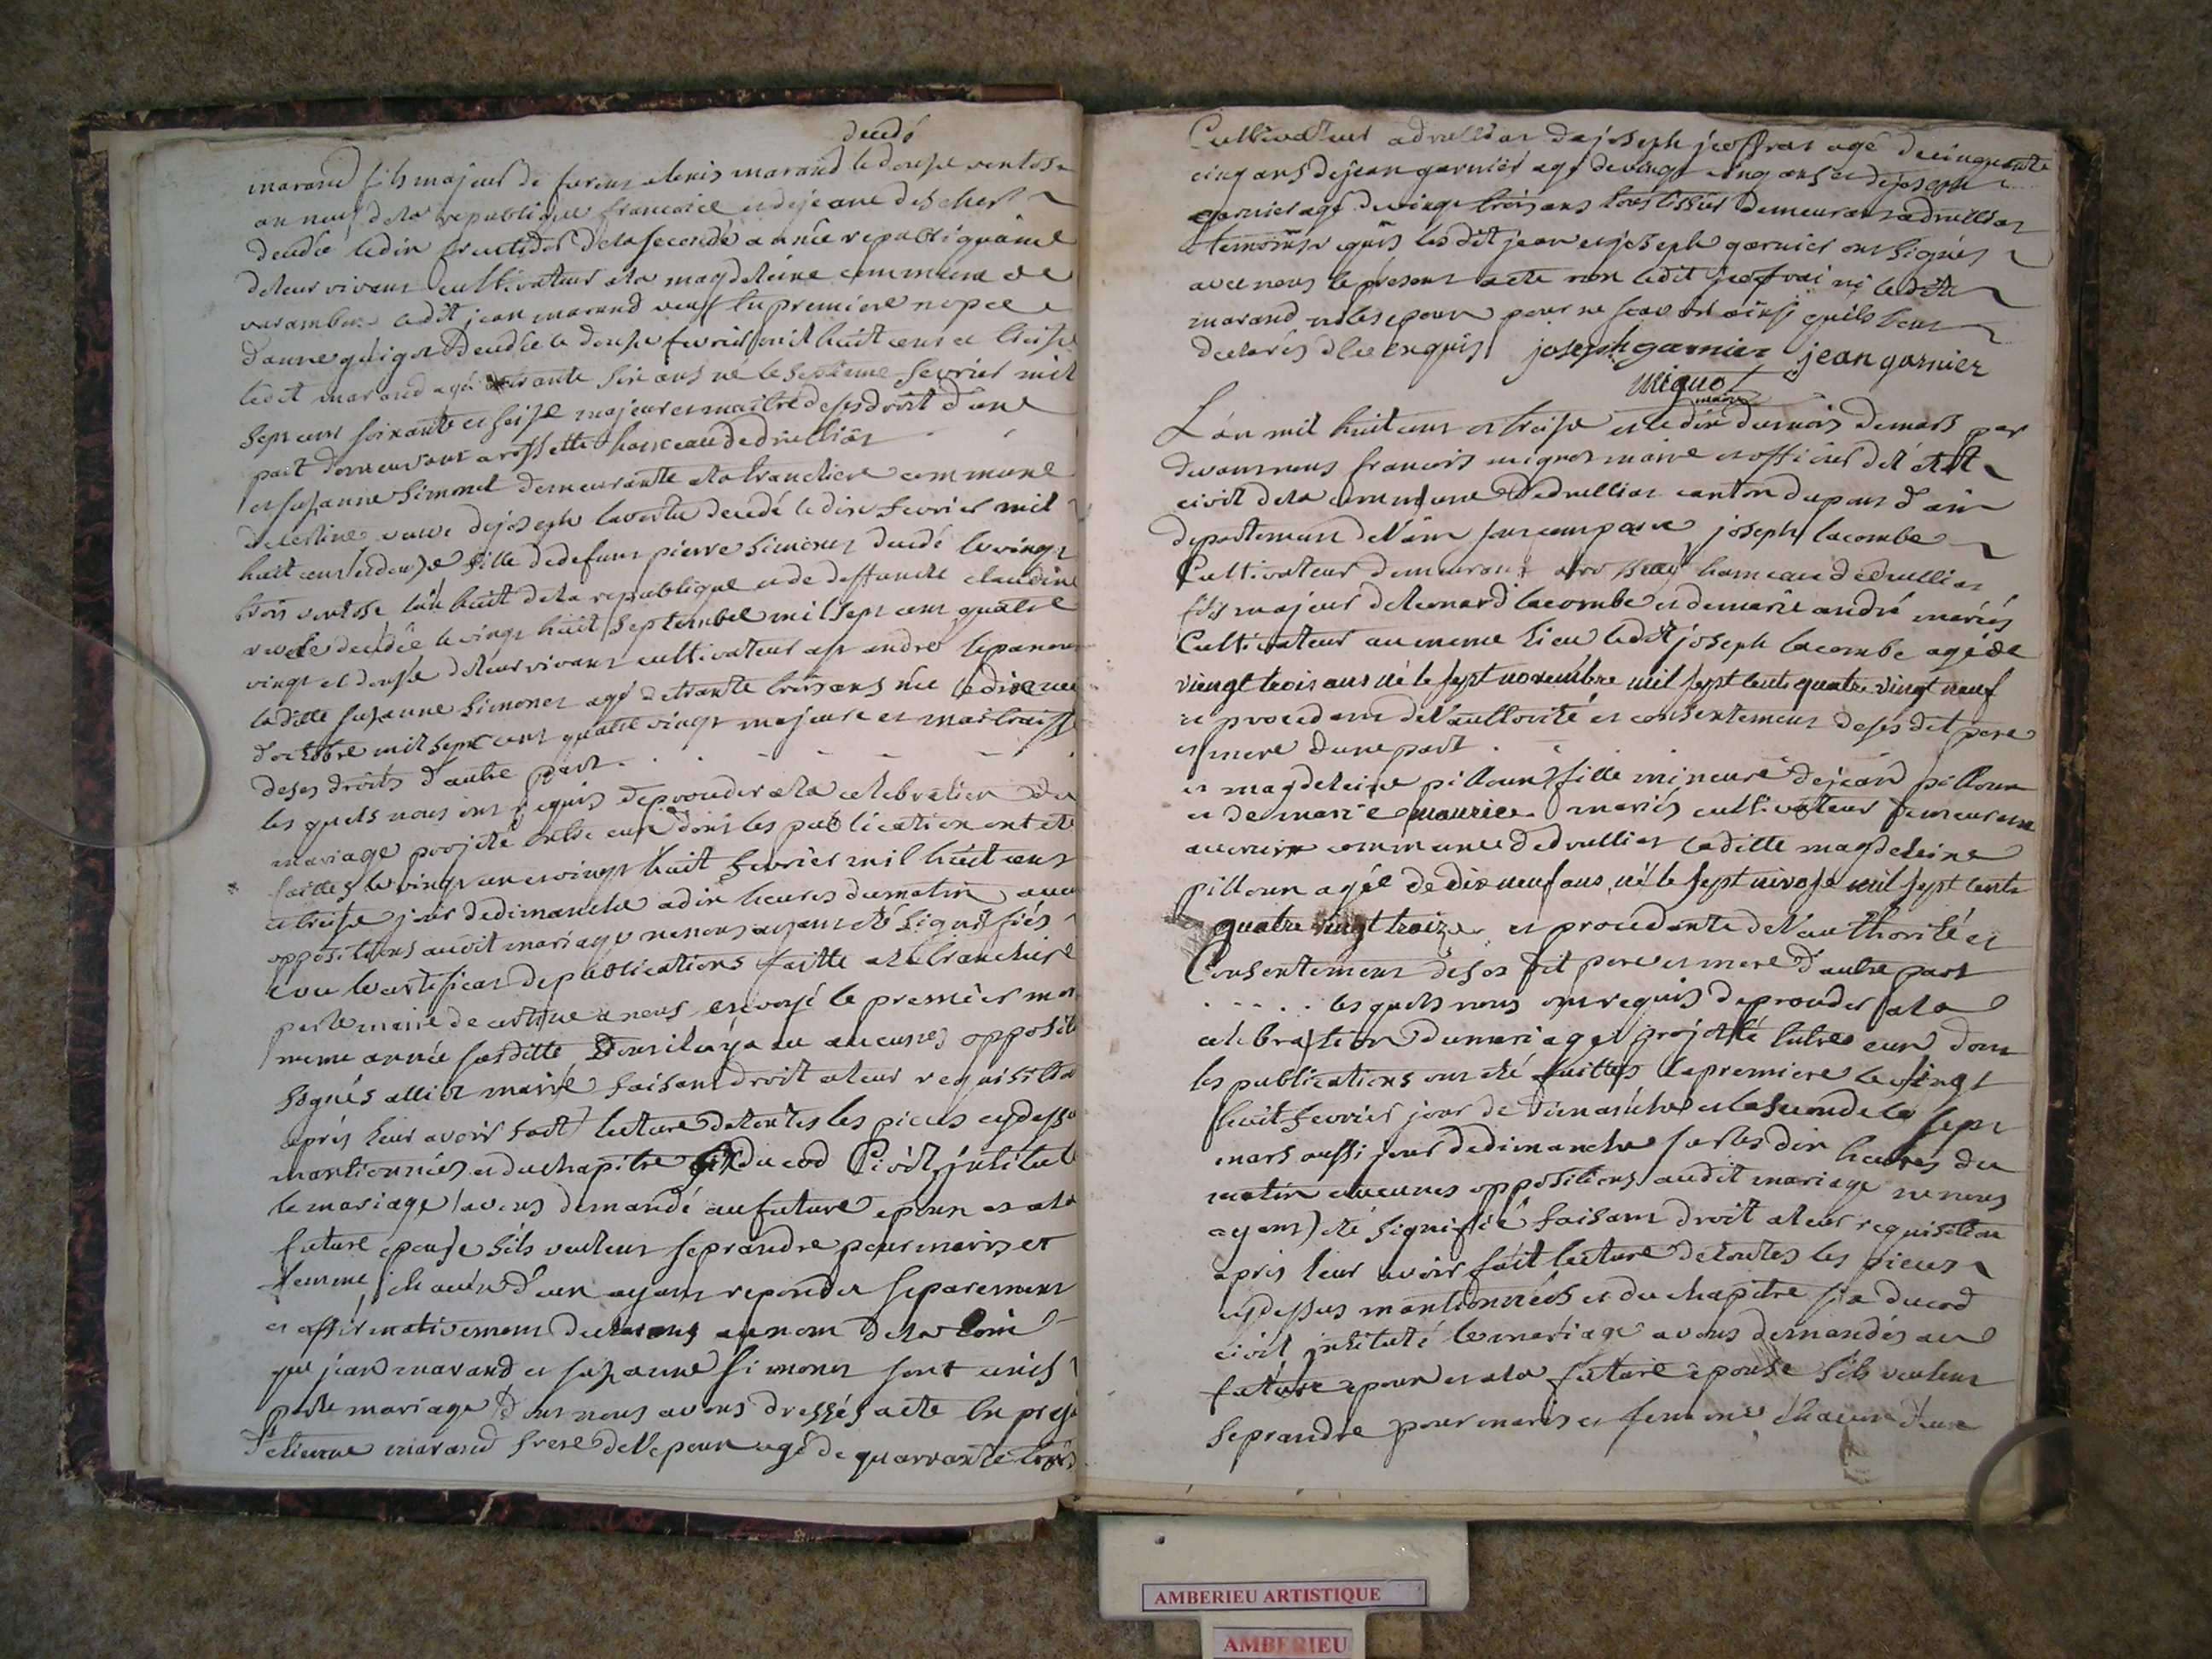 decedé
marand fils majeur de furent alexis marand le douse ventose
an neuf de la republique francoise et de jeanne descher
decedée le dix fructidor de la seconde année republiquaine
de leur vivant cultivateur a la magdeleine commune de
varambon ledit jean marand veuf en premiere nopce
danne guigot decedée le douse fevrier mil huit cent et treise
ledit marand agé de trante six ans né le septieme fevrier mil
sept cent soixante et seise majeur et maitre de ses droit d'une
part demeurant a rossette hameau de druillias
et suzanne simonet demeurante a la tranclier commune
de certine veuve de joseph laverte decedé le dix fevrier mil
huit cent et douze fille de defunt pierre simonet decedé le vingt
trois ventose l'an huit de la republique et de deffuncte claudine
decedée le vingt huit septembre mil sept cent quatre
vingt et douse de leur vivant cultivateur a st andré le panoux
laditte suzanne simonet agé de trante trois ans née le dix neuf
d'octobre mil sept cent quatre vingt majeure et maitraisse
de ses droits d'autre part
les quels nous ont requis de proceder a la celebration du
mariage projeté entre eux dont les publication ont eté
faittes le vingt un et vingt huit fevrier mil huit cent
et treise jour de dimanche a dix heures du matin aucu
oppositions audit mariage ne nous ayant eté signifiés
et vu le certificat de publications faitte a la tranclier
par le maire de certine a nous envoyé le premier mars
meme année susditte dont il n'y a eu aucunes opposit
signés alliot maire faisant droit a leur requisition
aprés leur avoir fait lecture de toutes les pieces cy dessu
mantionnées et du chapitre six du cod civil intitulé
le mariage avons demandé au future epoux et a la
future epouse s'ils veuleut se prandre pour maris et
femme chacun d'eux ayant repondu separement
et affirmativement declarons au nom de la loin
que jean marand et suzanne simonet sont unis
par le mariage dont nous avons dressés acte en prese
d'etienne marand frere de l'epoux agé de quarrante trois
Cultivateur a druillias de joseph jeoffrai agé de cinquante
cinq ans de jean garnier agé de vingt cinq ans et de joseph
garnier agé de vingt trois ans tous tissier demeurant a druillias
temoins lesdit jean et joseph garnier ont signés
avec nous le present acte non ledit jeoffrai ni ledit
marand ni les epoux pour ne scavoir ainsi qu'ils l'ont
declarés de ce enquis joseph garnier jean garnier
Mignot
maire
L'an mil huit cent et treise et le dix du mois de mars par
devant nous francois mignot maire et officier de l'etat
civil de la commune de druillias canton du pont d'ain
departement de l'ain sont comparu joseph lacombe
Cultivateur demeurant a rossettes hameau de druillias
fils majeur de leonard lacombe et de marie andré mariés
Cultivateur au meme lieu ledit joseph lacombe agé de
viengt trois ans né le sept novembre mil sept cents quatre vingt neuf
et procedant de l'authorité et consentement de ses dit pere
et mere d'une part
et magdeleine pilloux fille mineure de jean pilloux
et de marie maurice mariés cultivateur demeurant
commune de druillias laditte magdeleine
pilloux agée de dix neuf ans, né le sept nivose mil sept cents
quatre vingt treize et procedante de l'authorité et
Consentement de ses dit pere et mere d'autre part
les quels nous ont requis de proceder a la
celebration du mariage projetté entre eux dont
les publications ont eté faittes la premiere le vingt
huit fevrier jour de dimanche et la seconde le sept
mars aussi jour de dimanche sur les dix heures du
matin aucunes oppositions audit mariage ne nous
ayant eté signifiée faisant droit a leur requisition
apris leur avoir fait lecture de toutes les pieces
cy dessus mantionnées et du chapitre six du cod
civil intitulé le mariage avons demandés au
future epoux et a la future epouse s'ils veuleut
se prandre pour maris et femme chacun d'eux
AMBERIEU ARTISTIQUE
AMBERIEU